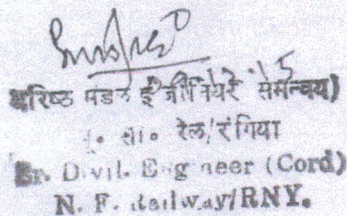 वरिष्ठ मंडल इंजीनियर (समन्वय)
रेल/रंगिया
Sr. Divil. Engineer (Cord)
N. F. Railway/RNY.